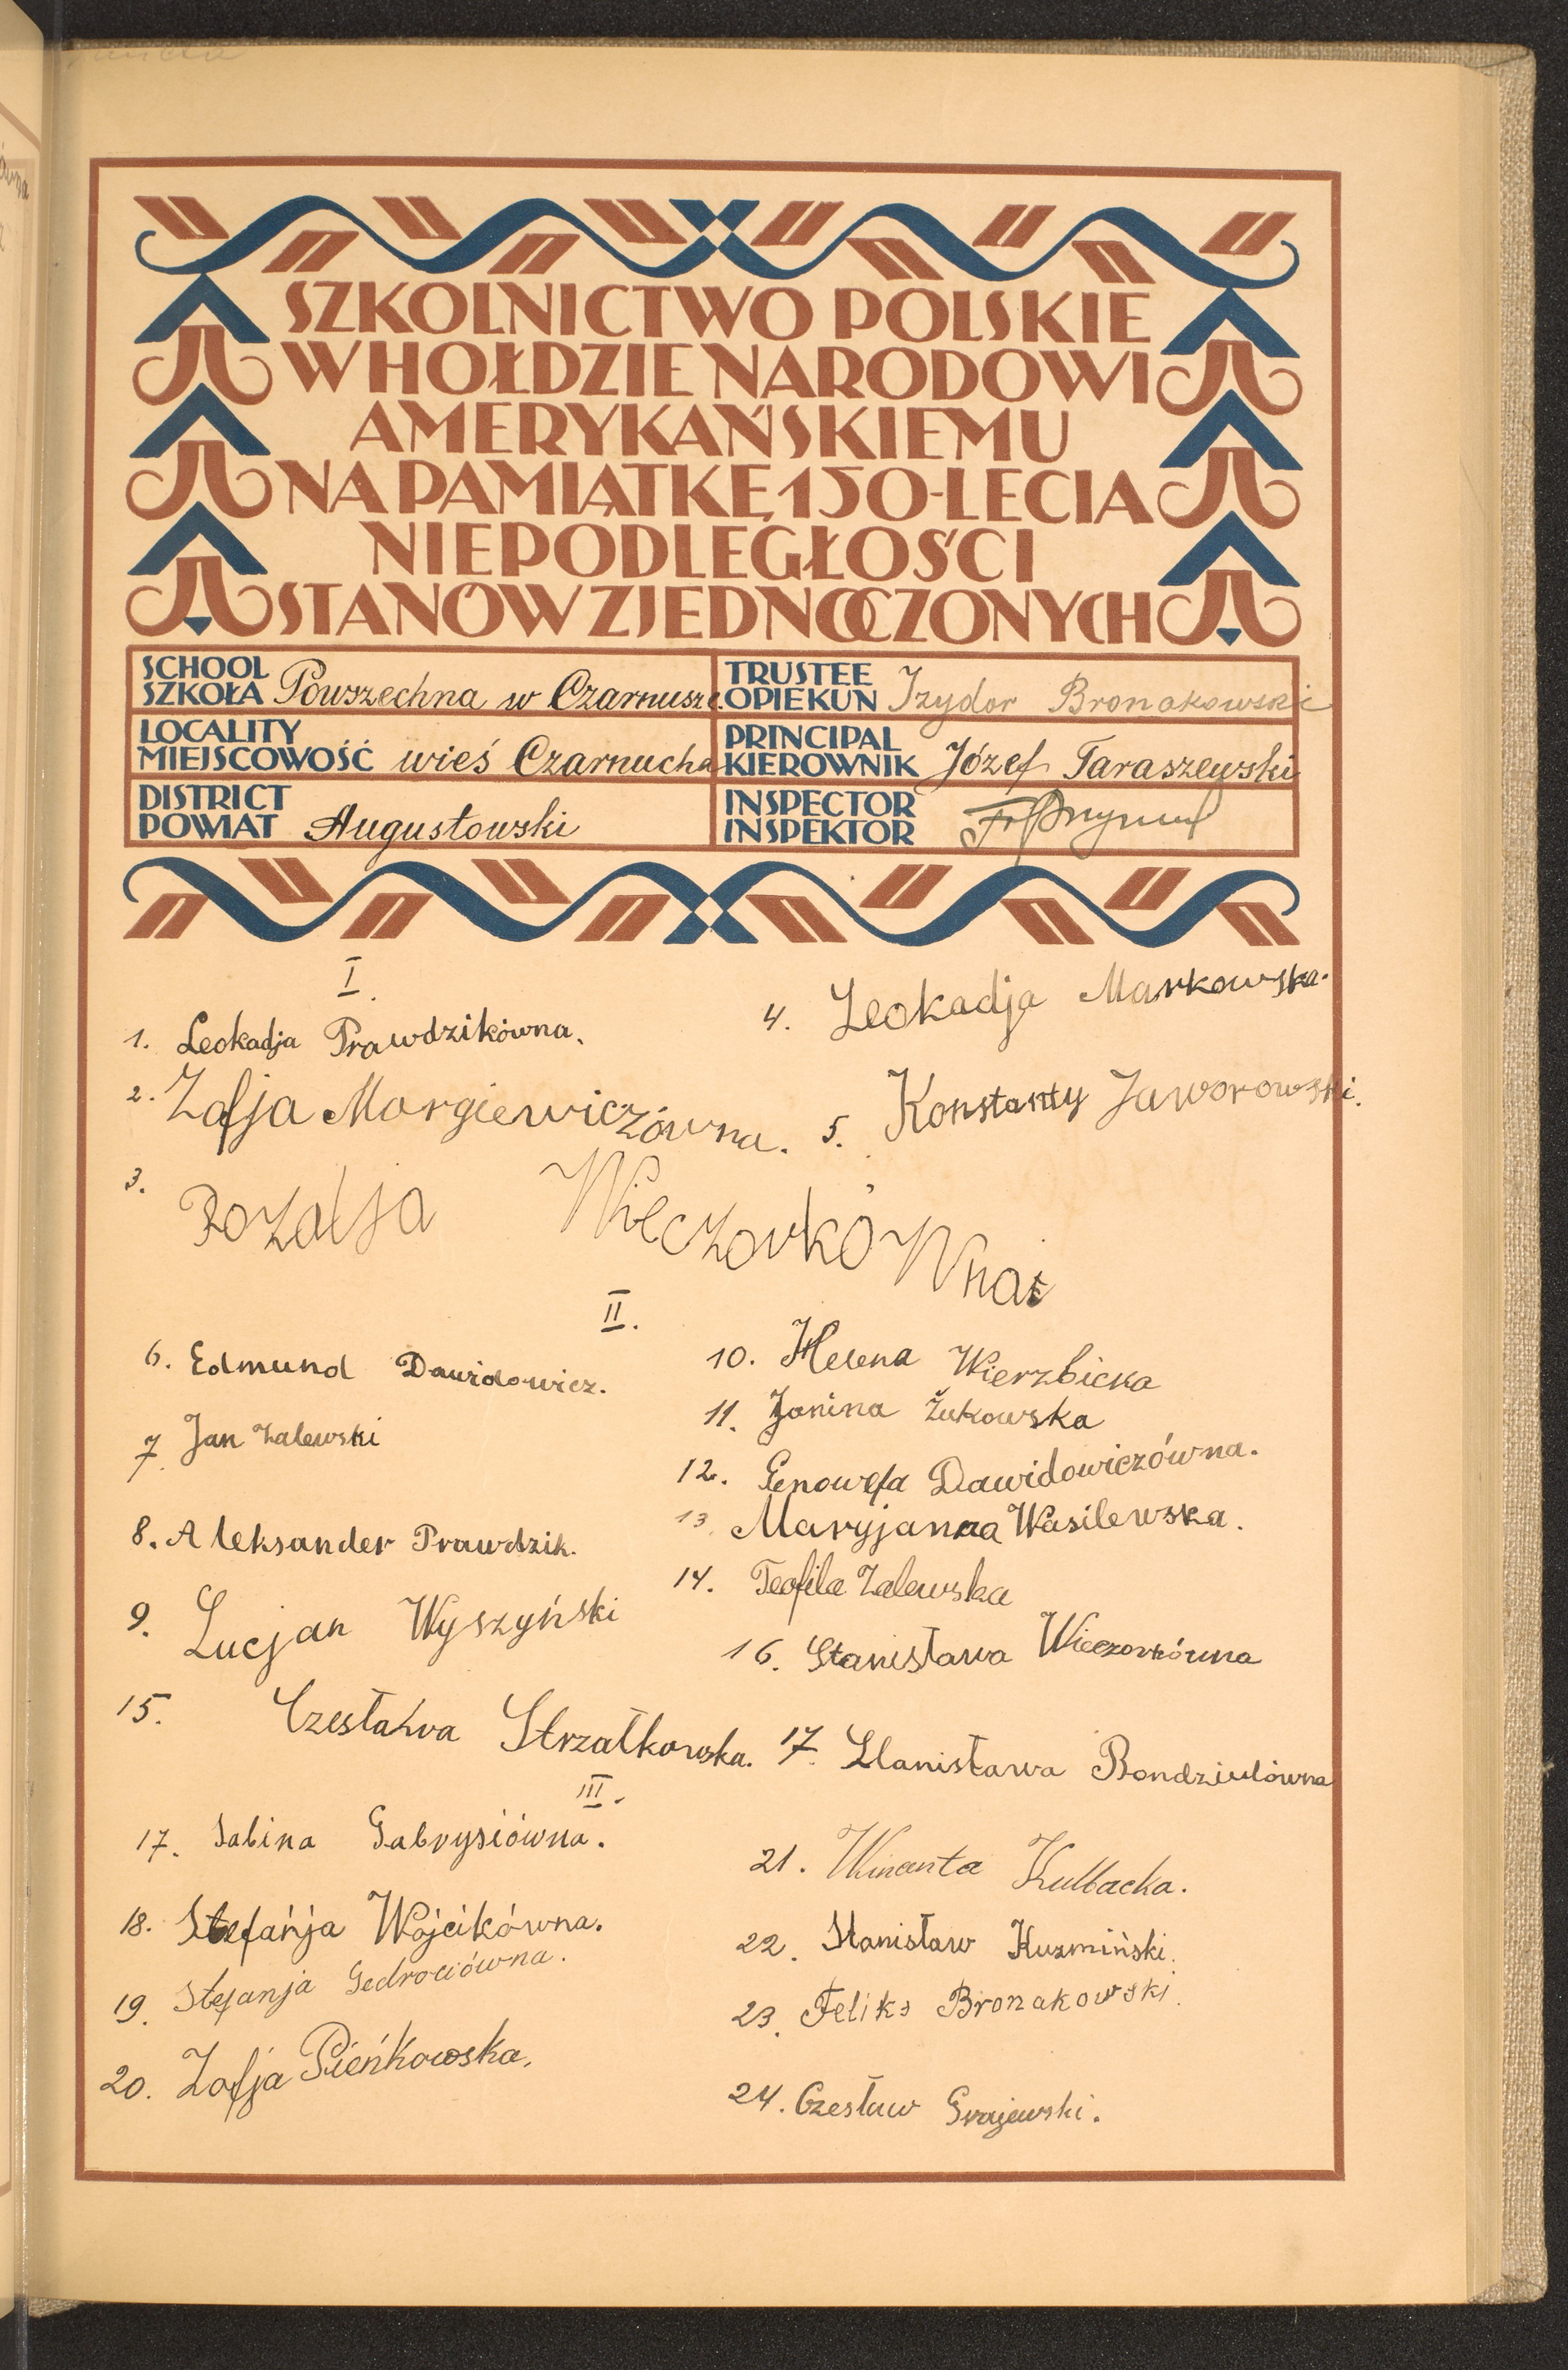 SZKOLNICTWO POLSKIE
W HOŁDZIE NARODOWI
AMERYKAŃSKIEMU
NA PAMIĄTKĘ 150-LECIA
NIEPODLEGŁOŚCI
STANÓW ZJEDNOCZONYCH
SCHOOL
SZKOŁA Powszechna w Czarnusze
LOCALITY
MIEJSCOWOŚĆ wieś Czarnucha
DISTRICT
POWIAT Augustowski
TRUSTEE
OPIEKUN Izydor Bronakowski
PRINCIPAL
KIEROWNIK Józef Taraszewski
INSPECTOR
INSPEKTOR
I.
1. Leokadja Prawdzikówna.
2. Zofja Margiewiczówna.
3. Rozalja Wieczorkówna
4. Leokadja Markowska.
5. Konstanty Jaworowski.
II.
6. Edmund Dawidowicz.
7. Jan Zalewski
8. Aleksander Prawdzik.
9. Lucjan Wyszyński
10. Helena Wierzbicka
11. Janina Żukowska
12. Genowefa Dawidowiczówna.
13. Maryjanna Wasilewska.
14. Teofila Zalewska
15. Czesława Strzałkowska.
16. Stanisława Wieczorkówna
17. Stanisława Bondziulówna
III.
17. Sabina Gabrysiówna.
18. Stefańja Wójcikówna.
19. Stefanja Gedrociówna.
20. Zofja Pieńkowska.
21. Winanta Kulbacka.
22. Stanisław Kuzmiński.
23. Feliks Bronakowski.
24. Czesław Grajewski.